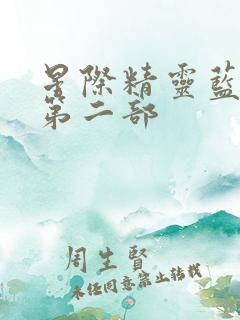 星際精靈藍
第二部
周生賢
未經同意禁止轉載